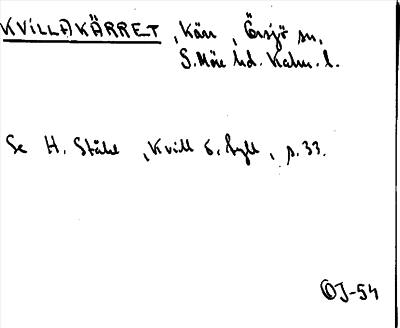 KVILLAKÄRRET, Kärr, Örsjö sn,
S. Möre hd. Kalm. l.
Se H. Ståhl, Kvill o. Fyll, p. 33.
OJ-54